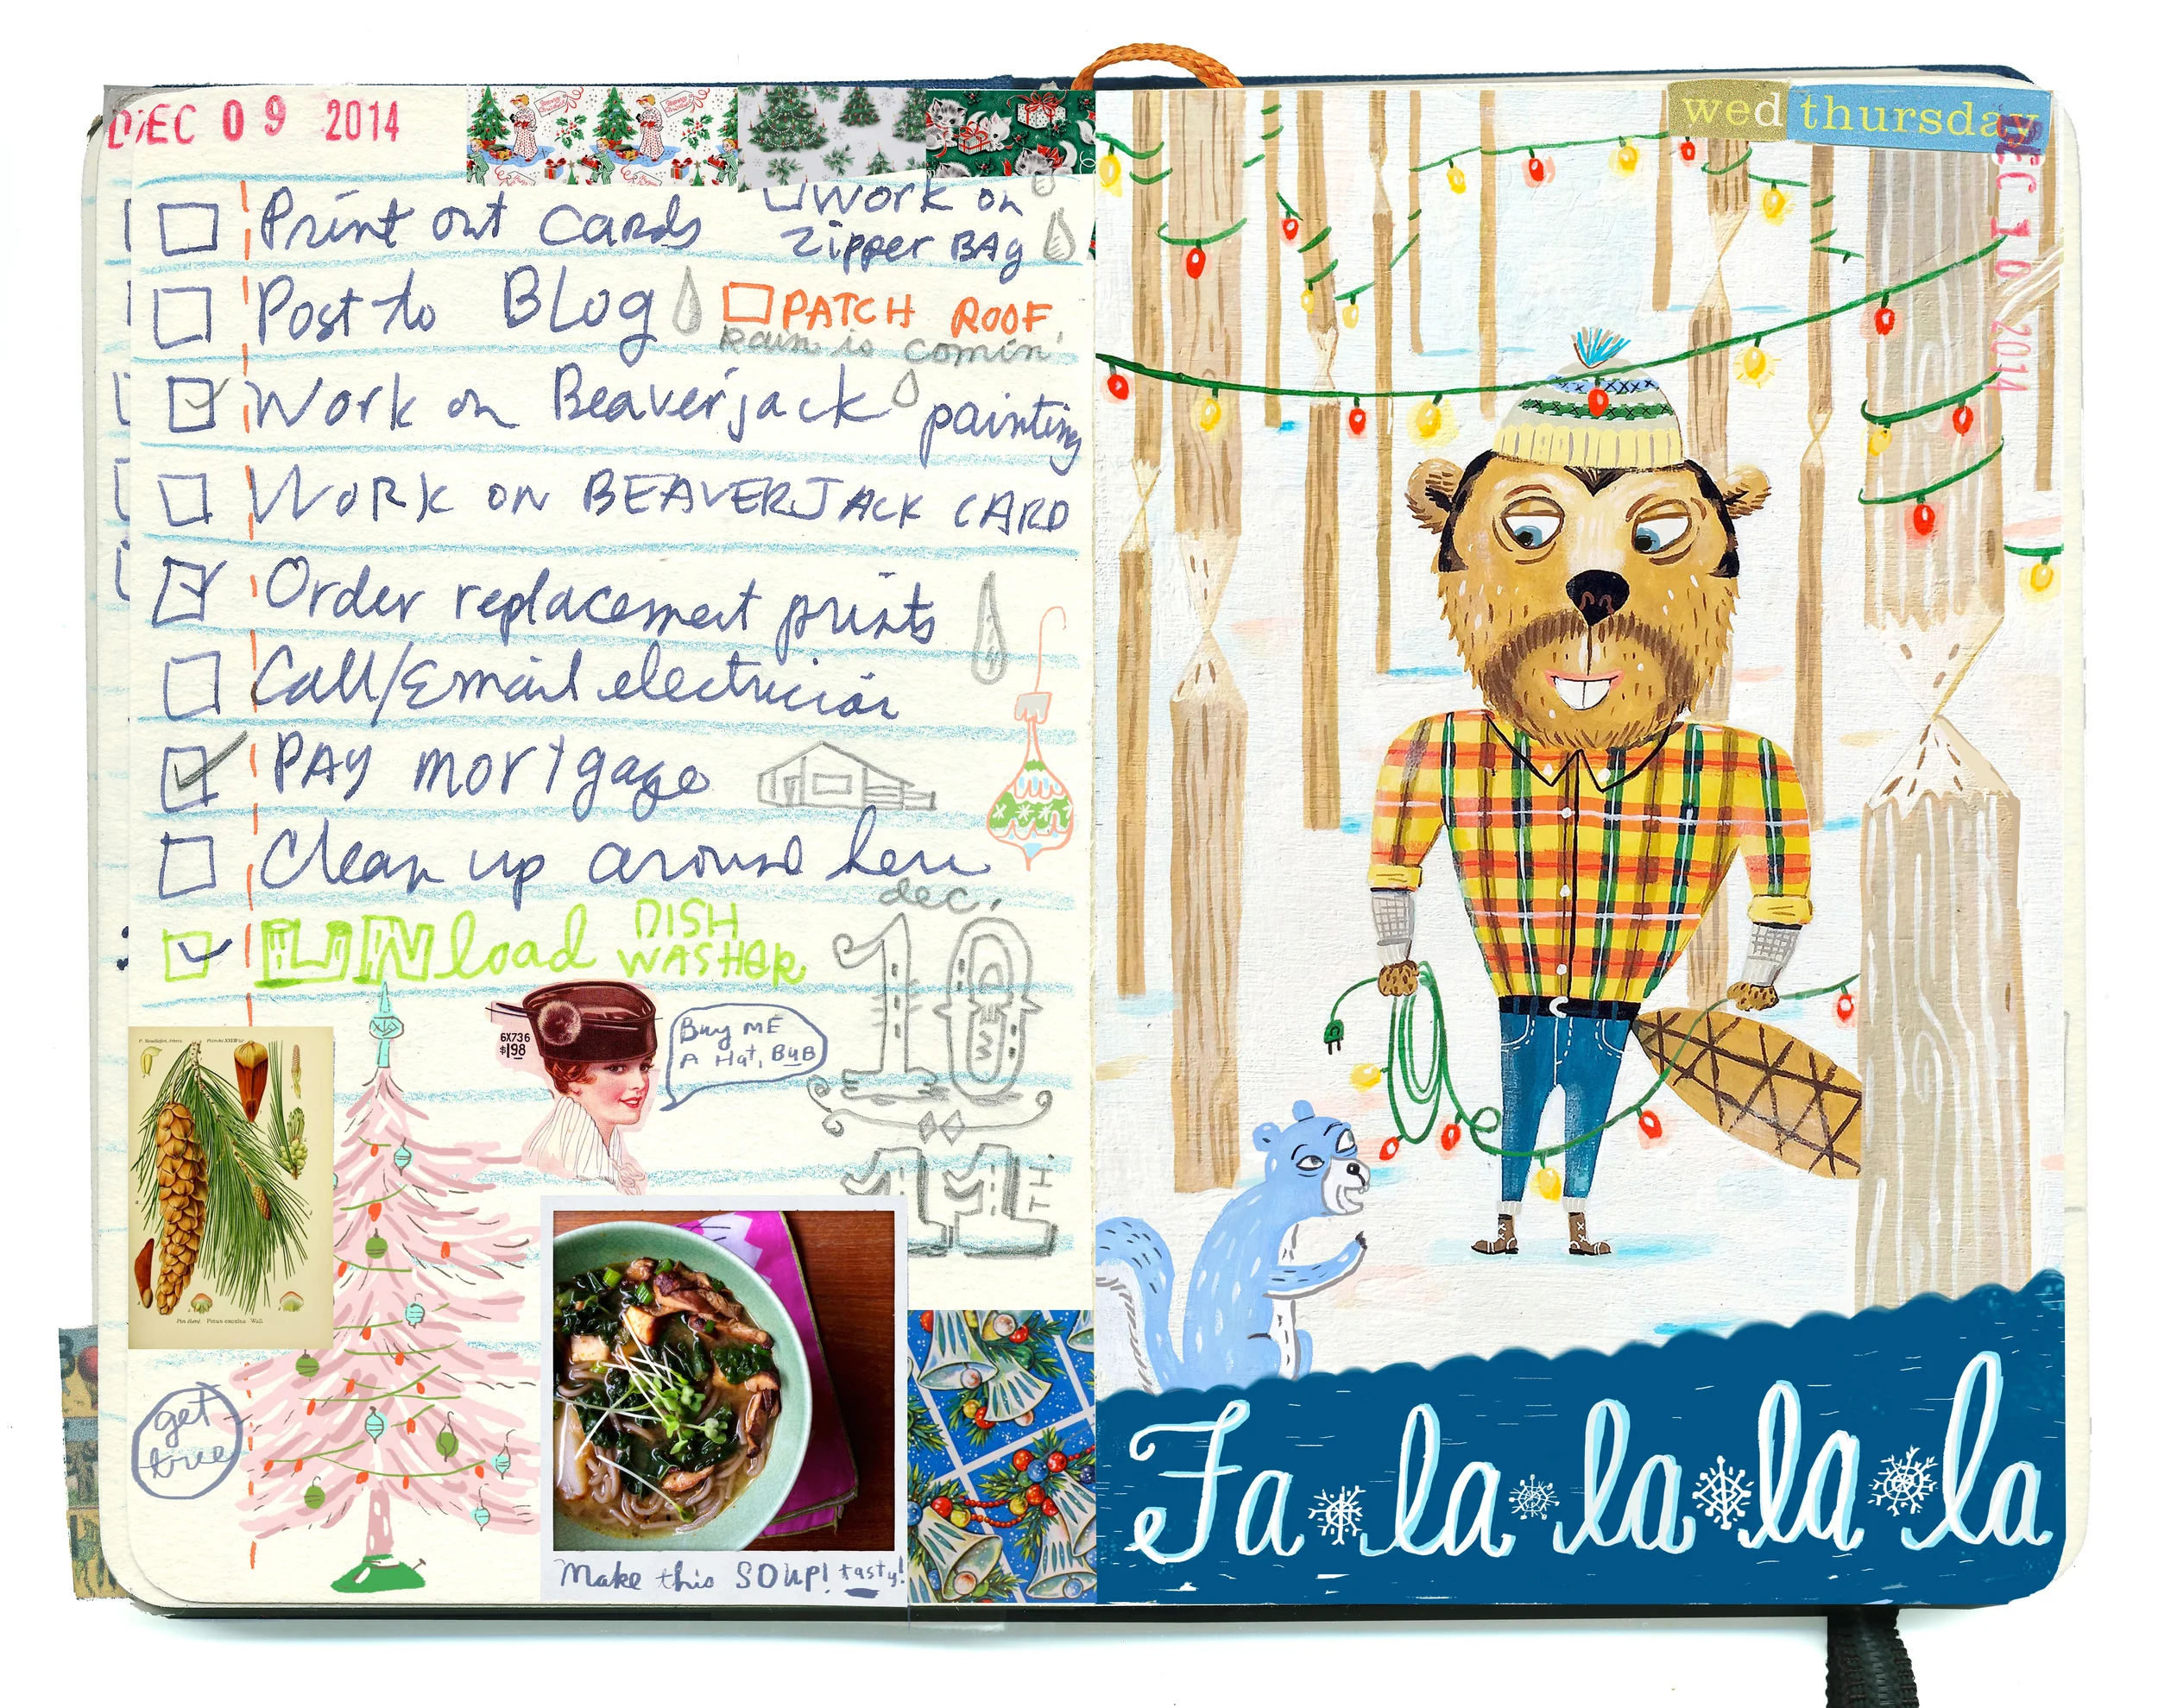 DEC 09 2014
Print out cards
Work on
Zipper BAg
Post to Blog
PATCH ROOF
Rain is comin'
Work on Beaverjack painting
WORK ON BEAVERJACK CARD
Order replacement prints
Call/Email electrician
PAY mortgage
Clean up around here
UNload DISH
WASHER
dec.
10
11
6X736
$1.98
Buy ME
A Hat, BUB
get
tree
Make this SOUP! tasty!
wed thursday
DEC 10 2014
Fa la la la la